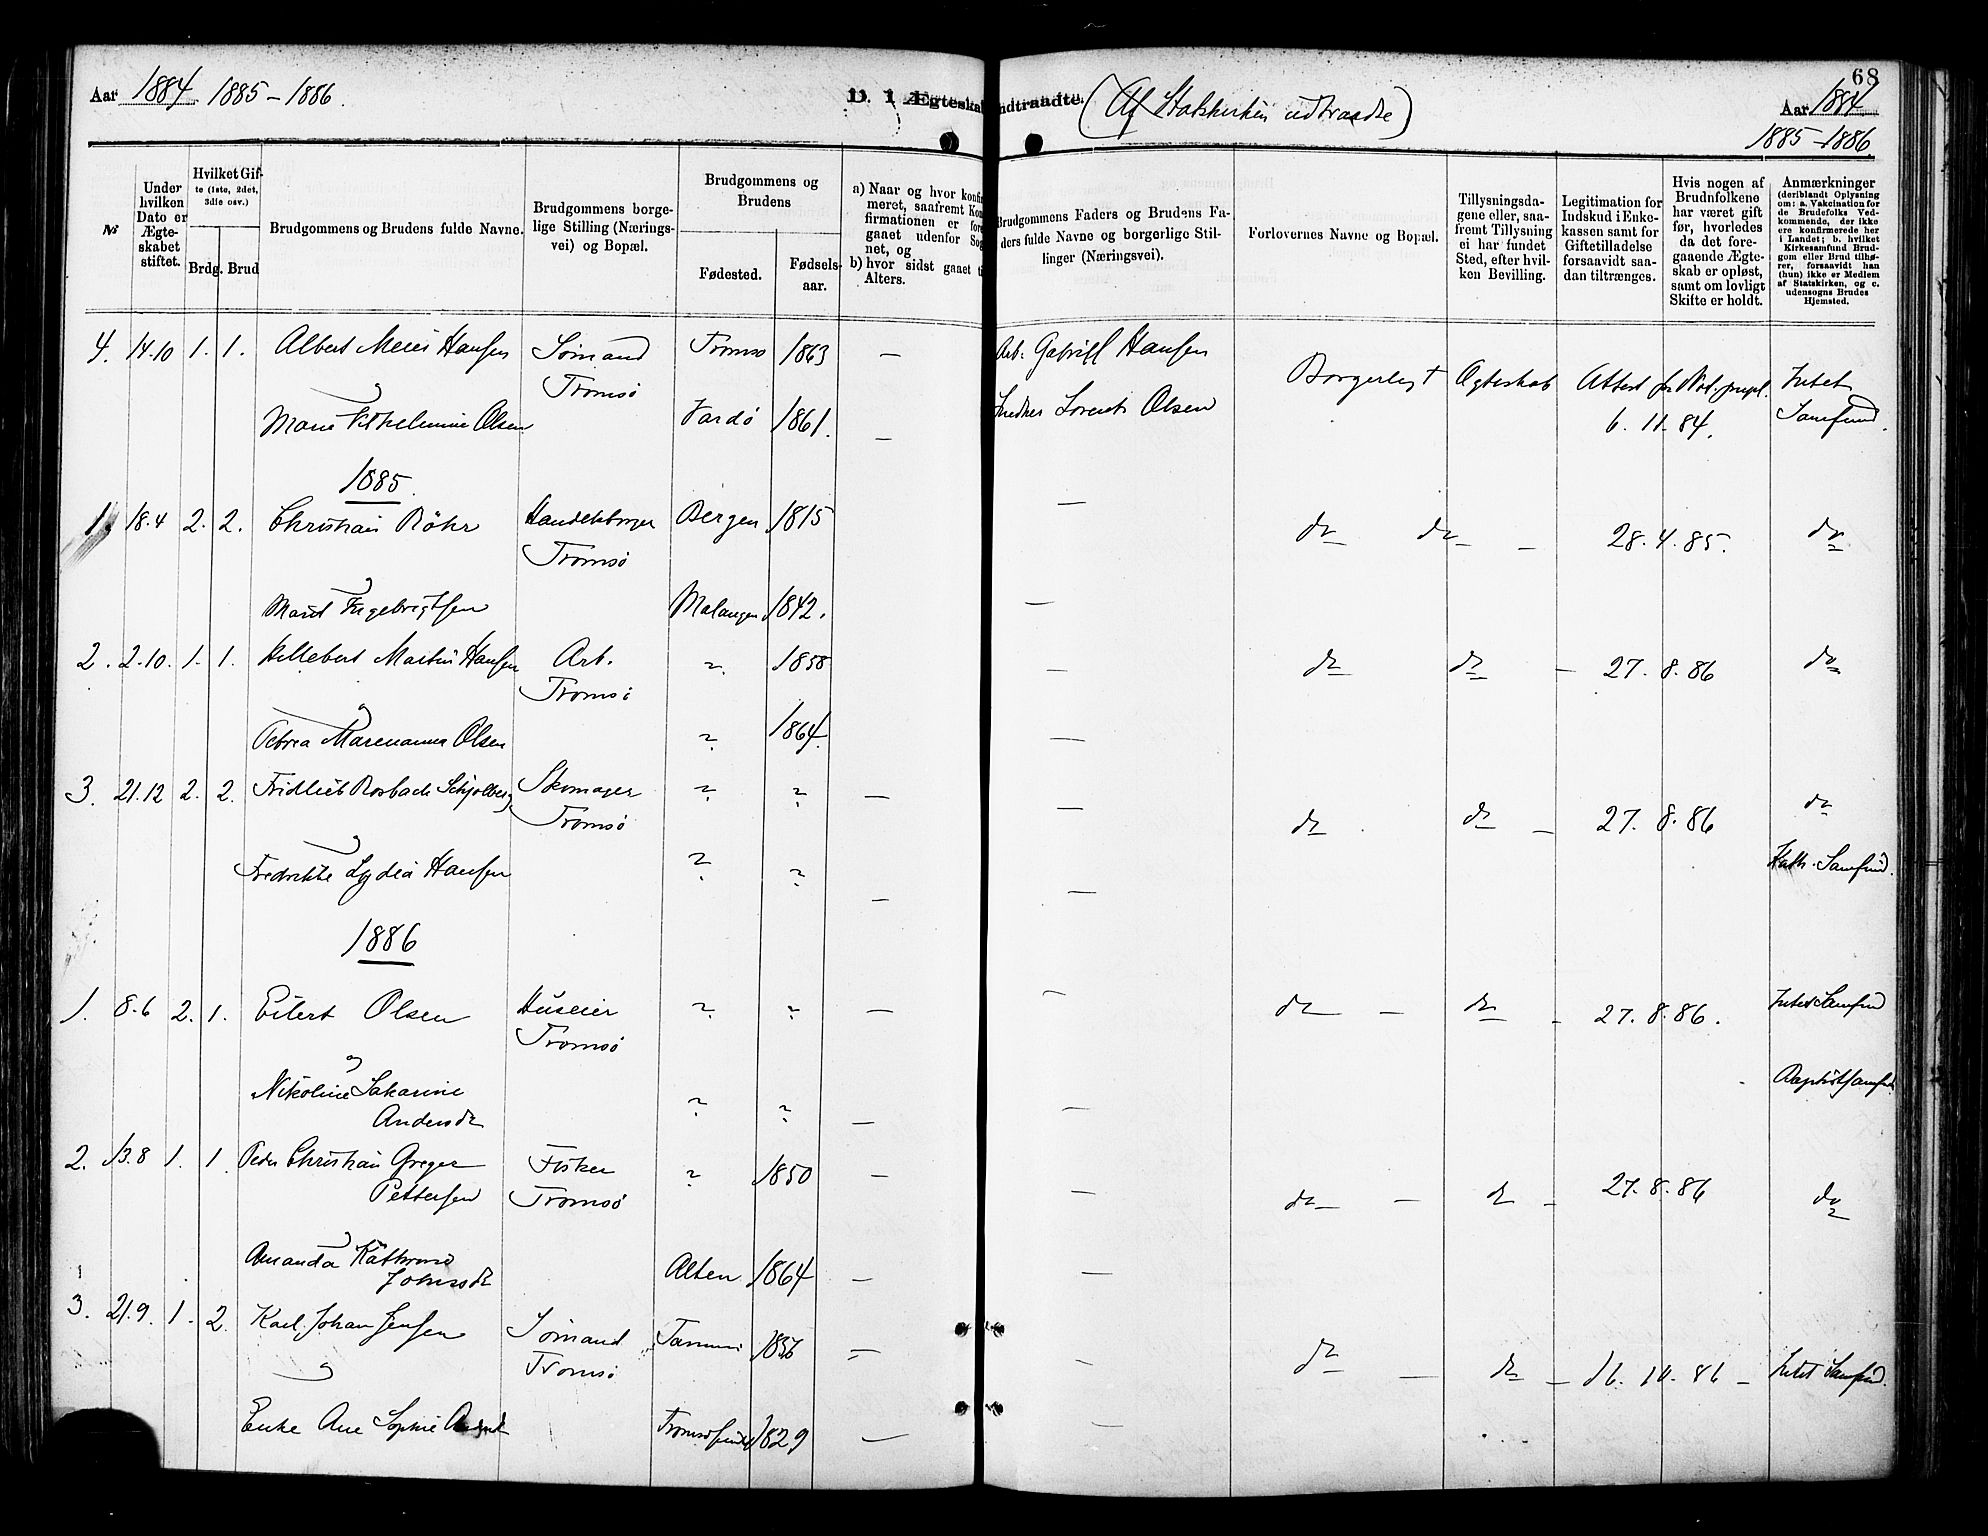 68
Aar 1884 1885-1886.
D. 1 Ægteska
ndtraadte. (Af Statskirken udtraadte)
Aar 1884
1885-1886
№
Under hvilken Dato er Ægteskabet stiftet.
Hvilket Gifte (1ste, 2det, 3die osv.)
Brdg. Brud
Brudgommens og Brudens fulde Navne.
Brudgommens borgelige Stilling (Næringsvei) og Bopæl.
Brudgommens og Brudens
Fødested.
Fødselsaar.
a) Naar og hvor konfi
meret, saafremt Kon
firmationen er fore
gaaet udenfor Sog
net, og
b) hvor sidst gaaet ti
Alters.
Brudgommens Faders og Brudens Faders fulde Navne og borgerlige Stillinger (Næringsvei).
Forlovernes Navne og Bopæl.
Tillysningsdagene eller, saafremt Tillysning ei har fundet Sted, efter hvilken Bevilling.
Legitimation for Indskud i Enkekassen samt for Giftetilladelse forsaavidt saadan tiltrænges.
Hvis nogen af Brudnfolkene har været gift før, hvorledes da det foregaaende Ægteskab er opløst, samt om lovligt Skifte er holdt.
Anmærkninger
(deriblandt Oplysning om: a. Vakcination for de Brudefolks Vedkommende, der ikke ere konfirmerede her i Landet; b. hvilket Kirkesamfund Brudgom eller Brud tilhører, forsaavidt han (hun) ikke er Medlem af Statskirken, og c. udensogns Brudes Hjemsted.
4. 14.10 1. 1. Albert Meier Hansen Sømand Tromsø 1863 — Arb. Gabriel Hansen Borgerligt Ægteskab Attest
Intet
Tromsø
og
Marie Vilhelmine Olsen Vardø 1861. — Snedker Lorents Olsen 6. 11. 84. Samfund.
1885.
1. 18.4 2. 2. Christian Röhr Handelsborger Bergen 1815 — do do — 28.4.85. do
Tromsø
og
Marit Ingebrigtsen Malangen 1842. —
2. 2.10. 1. 1. Hillebert Martin Hansen Arb. " 1858 — do do — 27.8.86 do
Tromsø
og
Petrea Marenanna Olsen " 1864. —
3. 21.12 2. 2. Fridlieb Rosback Schjølberg Skomager " " — — do do — 27.8.86 do
Tromsø
og
Fredrikke Lydia Hansen " " — — Kath. Samfund.
1886
1. 8.6 2. 1. Eilert Olsen Huseier " " — — do — do — 27.8.86. Intet Samfund
Tromsø
og
Nikoline Sakarine " " — — Baptistsamfund
Andersdr
2. 13.8 1. 1. Peder Christian Greger Fisker " 1850 — — do — do — 27.8.86 do
Pettersen Tromsø
og
Amanda Kathrine Alten 1864 — —
Johnsdr
3. 21.9. 1. 2. Karl Johan Jensen Sømand 1856 — — do — do — 16.10.86 — Intet Samfund.
og Tromsø
Enke Ane Sophie Tromsøsundet 1829 — —